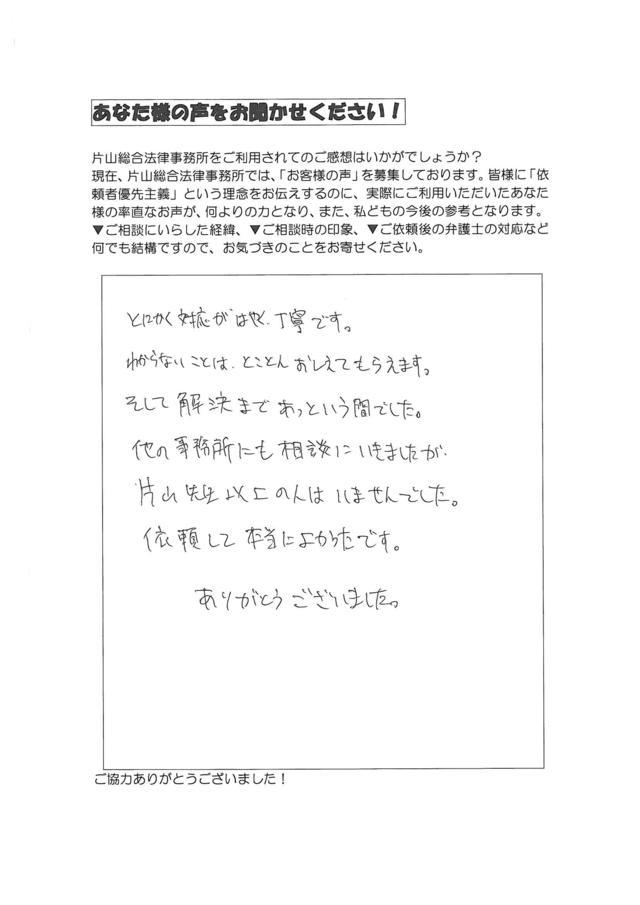 あなた様の声をお聞かせください！
片山総合法律事務所をご利用されてのご感想はいかがでしょうか？
現在、片山総合法律事務所では、「お客様の声」を募集しております。皆様に「依
頼者優先主義」という理念をお伝えするのに、実際にご利用いただいたあなた
様の率直なお声が、何よりの力となり、また、私どもの今後の参考となります。
▼ご相談にいらした経緯、▼ご相談時の印象、▼ご依頼後の弁護士の対応など
何でも結構ですので、お気づきのことをお寄せください。
とにかく対応がはやく、丁寧です。
わからないことは、とことんおしえてもらえます。
そして解決まであっという間でした。
他の事務所にも相談にいきましたが
片山先生以上の人はいませんでした。
依頼して本当によかったです。
ありがとうございました。
ご協力ありがとうございました！